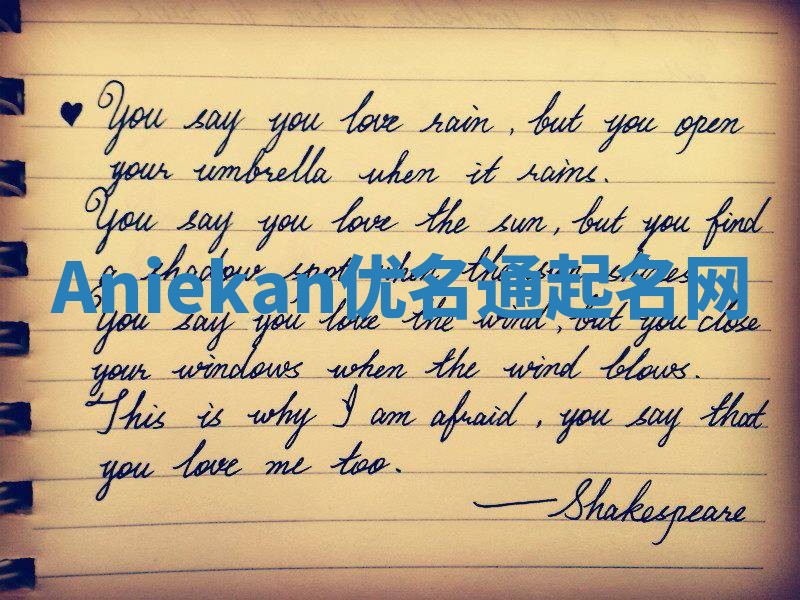 ♥ You say you love rain, but you open
your umbrella when it rains.
You say you love the sun, but you find
a shadow spot when the sun shines.
Aniekan优名通起名网
You say you love the wind, but you close
your windows when the wind blows.
This is why I am afraid, you say that
you love me too.
—Shakespeare